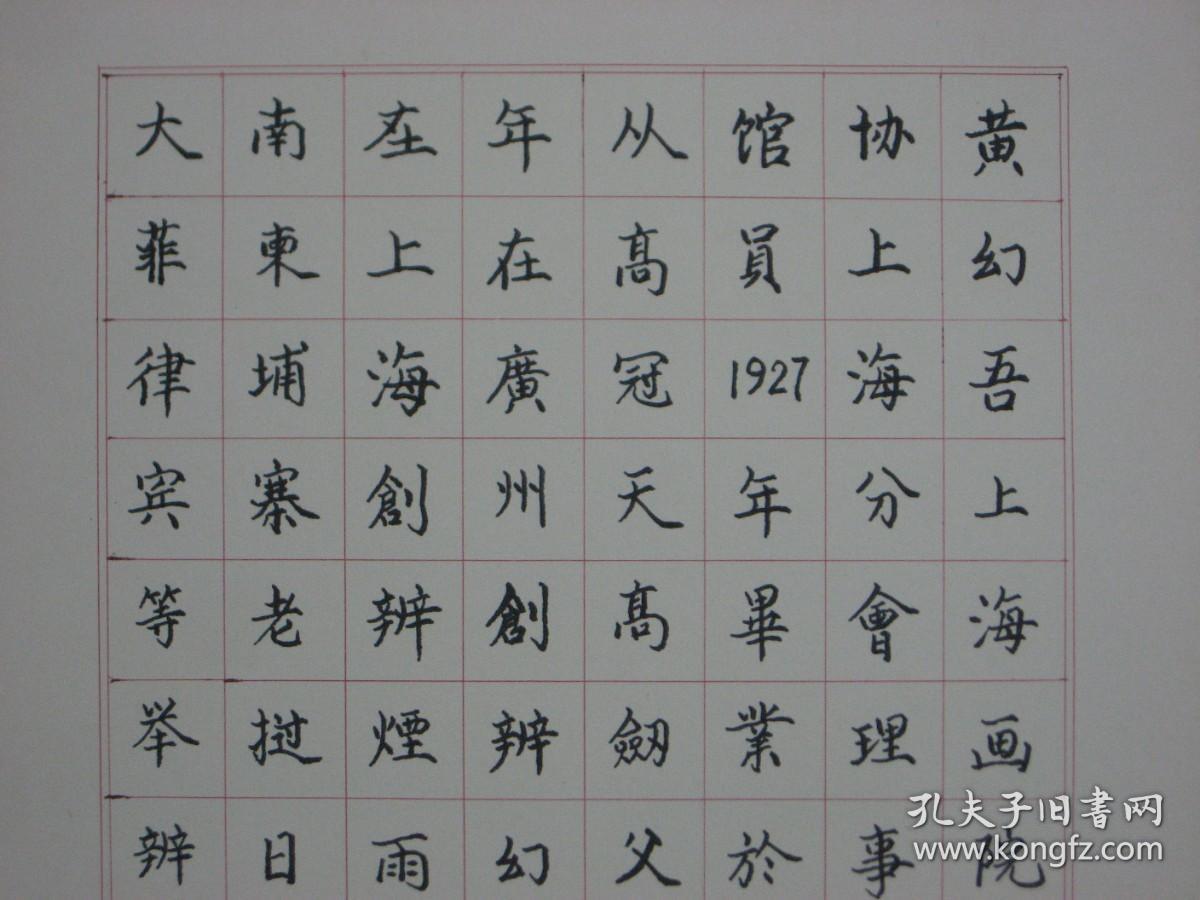 黄幻吾上海画院
协上海分會理事
馆員1927年畢業於
从高冠天高劒父
年在廣州創辨幻
在上海創辨煙雨
南東埔寨老挝日
大菲律宾等举辨
孔夫子旧書网
www.kongfz.com